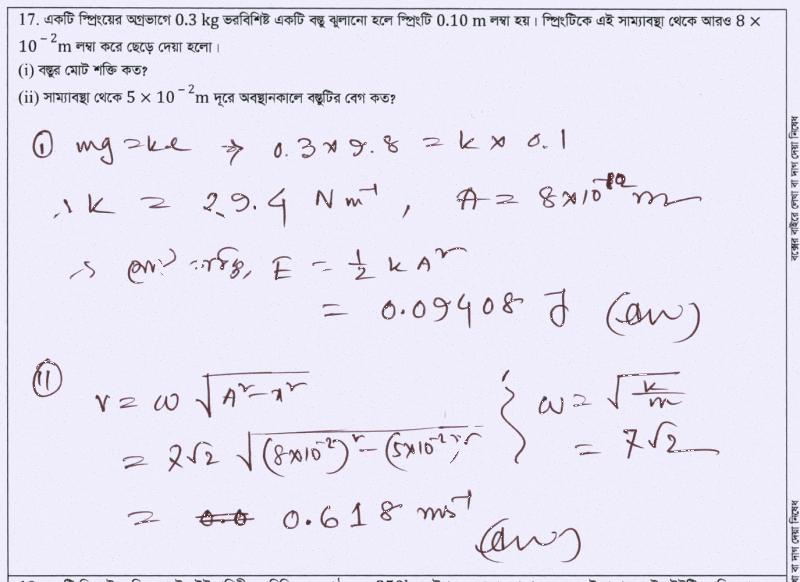 17. একটি স্প্রিংয়ের অগ্রভাগে 0.3 kg ভরবিশিষ্ট একটি বস্তু ঝুলানো হলে স্প্রিংটি 0.10 m লম্বা হয়। স্প্রিংটিকে এই সাম্যাবস্থা থেকে আরও 8 ×
10⁻²m লম্বা করে ছেড়ে দেয়া হলো।
(i) বস্তুর মোট শক্তি কত?
(ii) সাম্যাবস্থা থেকে 5 × 10⁻²m দূরে অবস্থানকালে বস্তুটির বেগ কত?
(i) mg = ke → 0.3 × 9.8 = k × 0.1
∴ k = 29.4 Nm⁻¹, A = 8×10⁻² m
→ মোট শক্তি, E = ½ k A²
= 0.09408 J (ans)
(ii) v = ω √(A² − x²) } ω = √(k/m)
= 7√2 √((8×10⁻²)² − (5×10⁻²)²) = 7√2
= 0.618 ms⁻¹
(ans)
বক্সের বাইরে লেখা বা দাগ দেয়া নিষেধ
বা দাগ দেয়া নিষেধ